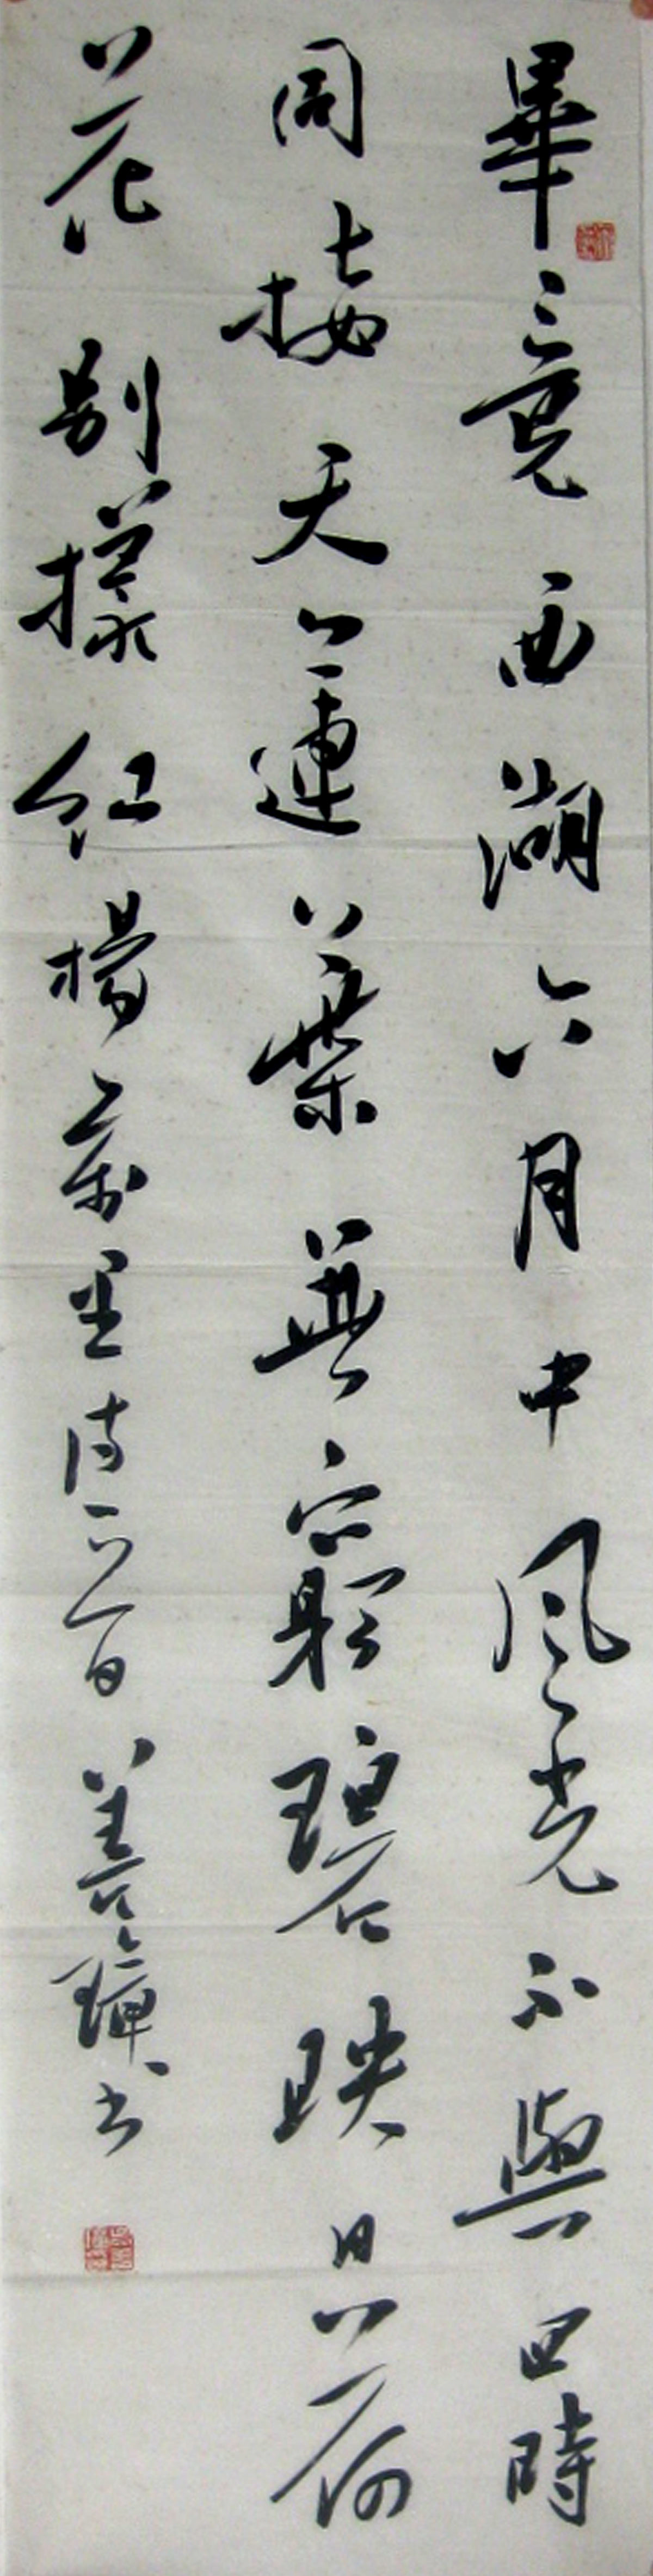 畢竟西湖六月中風光不與四時
同接天蓮葉無窮碧映日荷
花别樣紅楊萬里詩一首善璋书